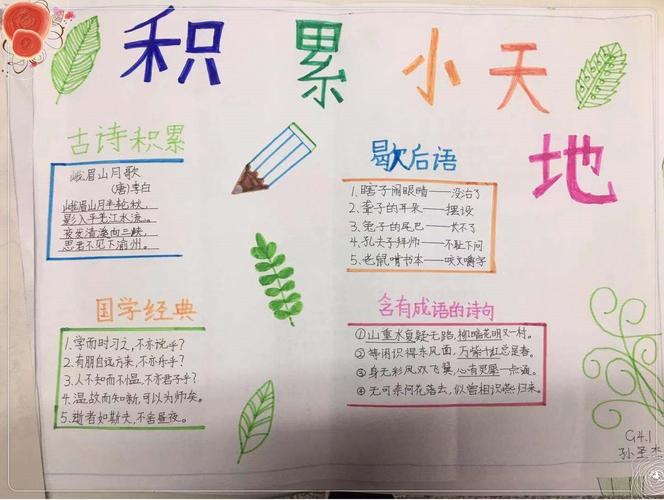 积累小天地
古诗积累
峨眉山月歌
(唐)李白
峨眉山月半轮秋,
影入平羌江水流。
夜发清溪向三峡,
思君不见下渝州。
歇后语
1.瞎子闹眼睛——没治了
2.聋子的耳朵——摆设
3.兔子的尾巴——长不了
4.孔夫子拜师——不耻下问
5.老鼠啃书本——咬文嚼字
国学经典
1.学而时习之,不亦说乎?
2.有朋自远方来,不亦乐乎?
3.人不知而不愠,不亦君子乎?
4.温故而知新,可以为师矣。
5.逝者如斯夫,不舍昼夜。
含有成语的诗句
①山重水复疑无路,柳暗花明又一村。
②等闲识得东风面,万紫千红总是春。
③身无彩凤双飞翼,心有灵犀一点通。
④无可奈何花落去,似曾相识燕归来。
G4.1
孙圣杰